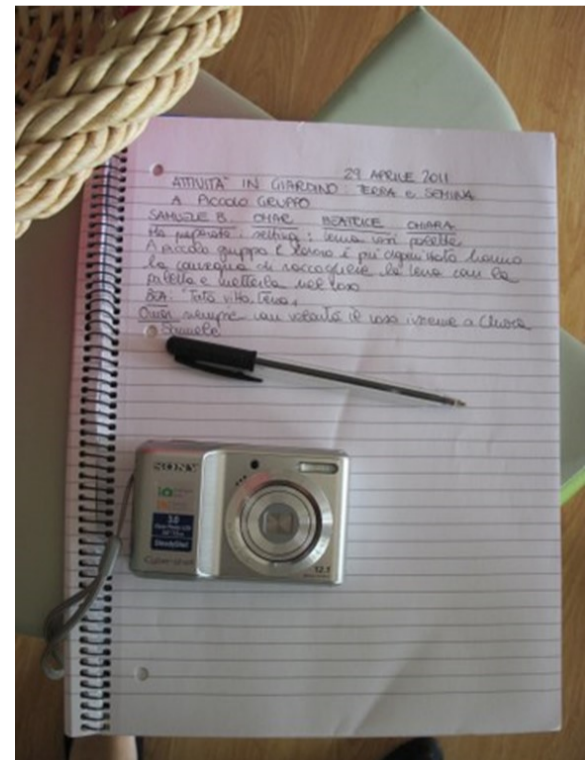 29 APRILE 2011
ATTIVITA' IN GIARDINO: TERRA e SEMINA
A PICCOLO GRUPPO
SAMUELE B. OMAR BEATRICE CHIARA
Ho preparato i setting: terra vasi palette.
A piccolo gruppo il lavoro è più hanno
la consegna di raccogliere la terra con la
paletta e metterla nel vaso
BEA: "Tata terra"
Omar sempre il vaso insieme a Chiara
e Samuele
SONY
3.0
SteadyShot
Cyber-shot
12.1